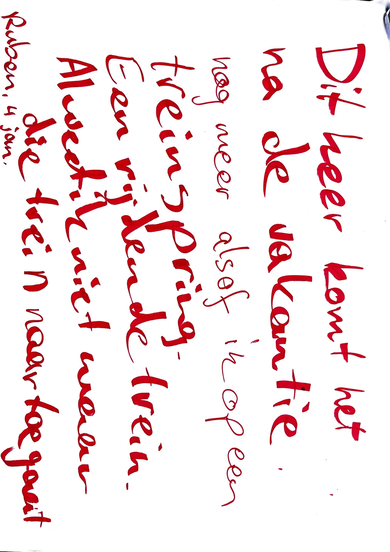 Dit keer komt het
na de vakantie.
nog meer alsof ik op een
trein spring.
Een rijdende trein.
Al weet ik niet waar
die trein naartoe gaat
Ruben, 4 jan.